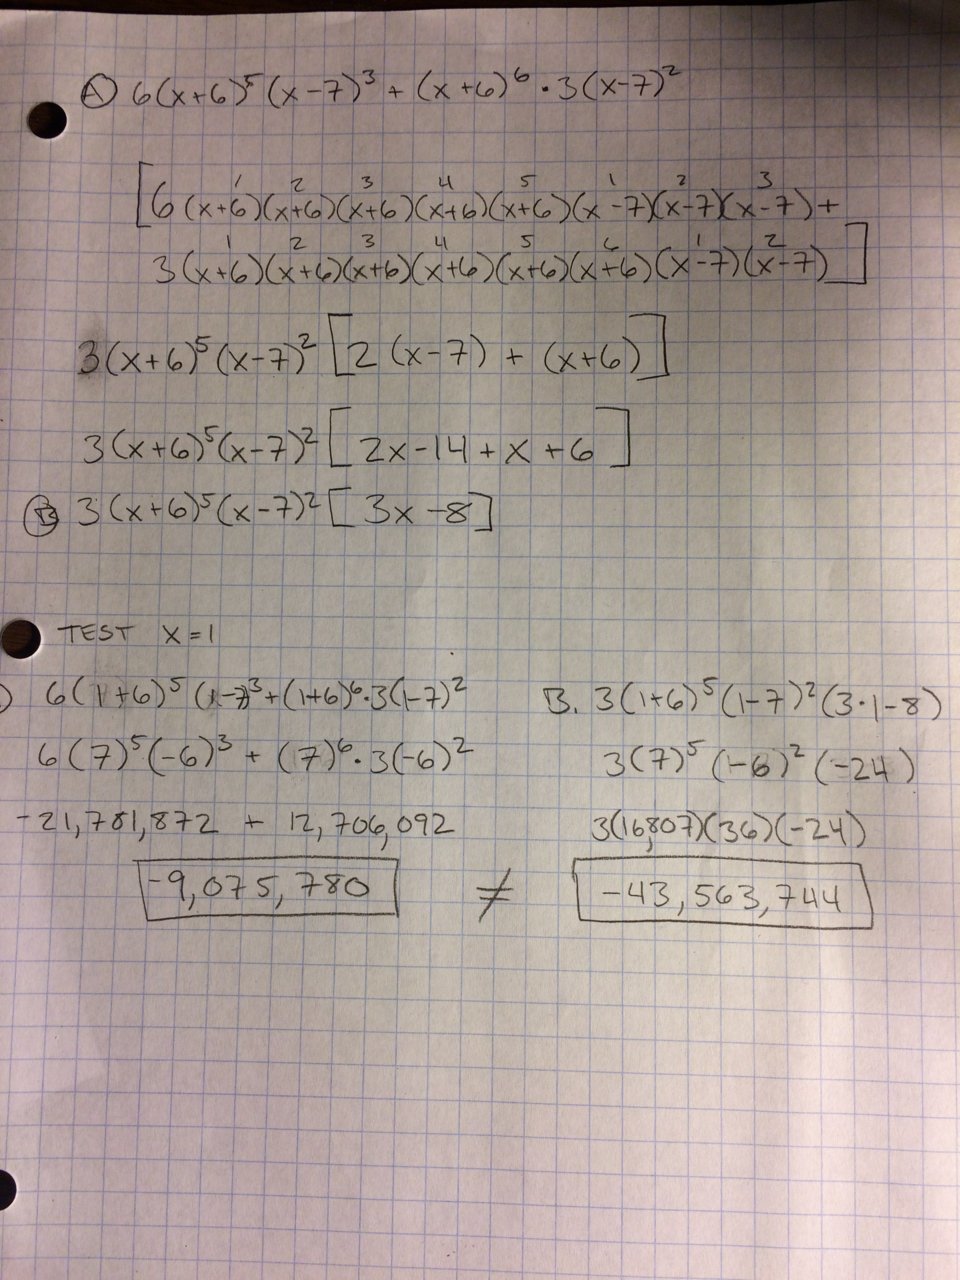 Ⓐ 6(x+6)⁵(x-7)³ + (x+6)⁶ · 3(x-7)²
1 2 3 4 5 1 2 3
[6(x+6)(x+6)(x+6)(x+6)(x+6)(x-7)(x-7)(x-7) +
1 2 3 4 5 6 1 2
3(x+6)(x+6)(x+6)(x+6)(x+6)(x+6)(x-7)(x-7)]
3(x+6)⁵(x-7)² [2(x-7) + (x+6)]
3(x+6)⁵(x-7)² [2x-14+x+6]
Ⓑ 3(x+6)⁵(x-7)² [3x-8]
TEST x=1
) 6(1+6)⁵(1-7)³+(1+6)⁶·3(1-7)²
6(7)⁵(-6)³ + (7)⁶·3(-6)²
-21,781,872 + 12,706,092
-9,075,780
≠
B. 3(1+6)⁵(1-7)²(3·1-8)
3(7)⁵(-6)²(-24)
3(16,807)(36)(-24)
-43,563,744